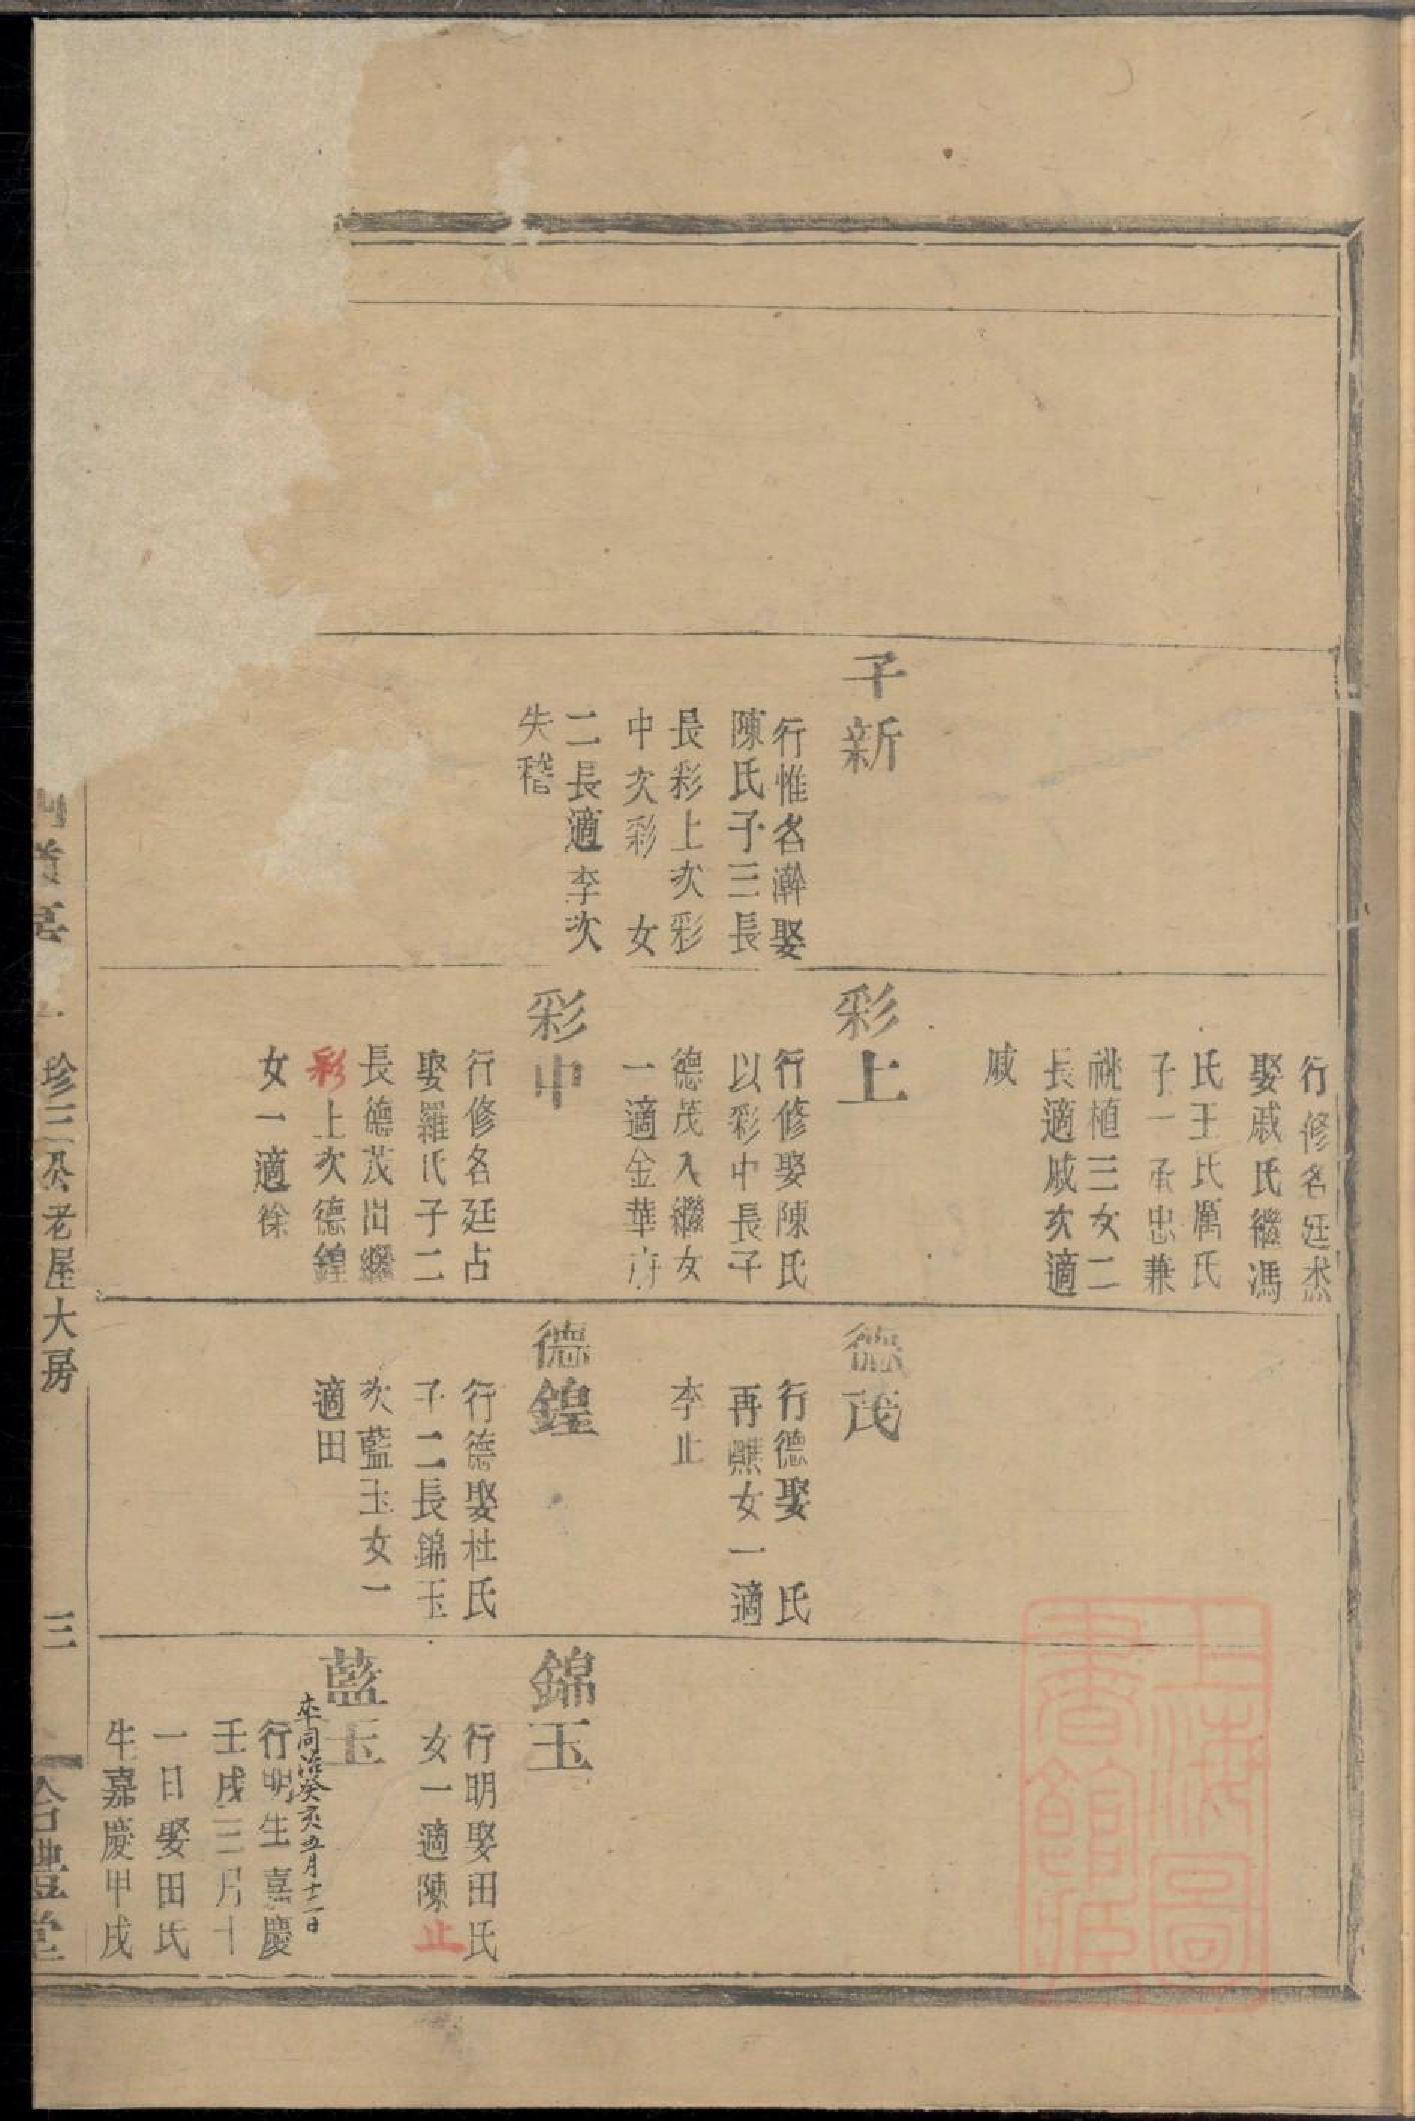 子新
行惟名澣娶
陳氏子三長
長彩上次彩
中次彩 女
二長適李次
失稽
行修名廷杰
娶戚氏繼馮
氏王氏厲氏
子一承忠兼
祧植三女二
長適戚次適
戚
彩上
行修娶陳氏
以彩中長子
德茂入繼女
一適金華府
彩中
行修名廷占
娶羅氏子二
長德茂出繼
彩上次德鍠
女一適徐
德茂
行德娶 氏
再醮女一適
李止
德鍠
行德娶杜氏
子二長錦玉
次藍玉女一
適田
錦玉
行明娶田氏
女一適陳止
藍玉
卒同治癸亥五月十二日
行明生嘉慶
壬戌三月十
一日娶田氏
生嘉慶甲戌
珍三公老屋大房
三
合禮堂
上海圖
書館藏